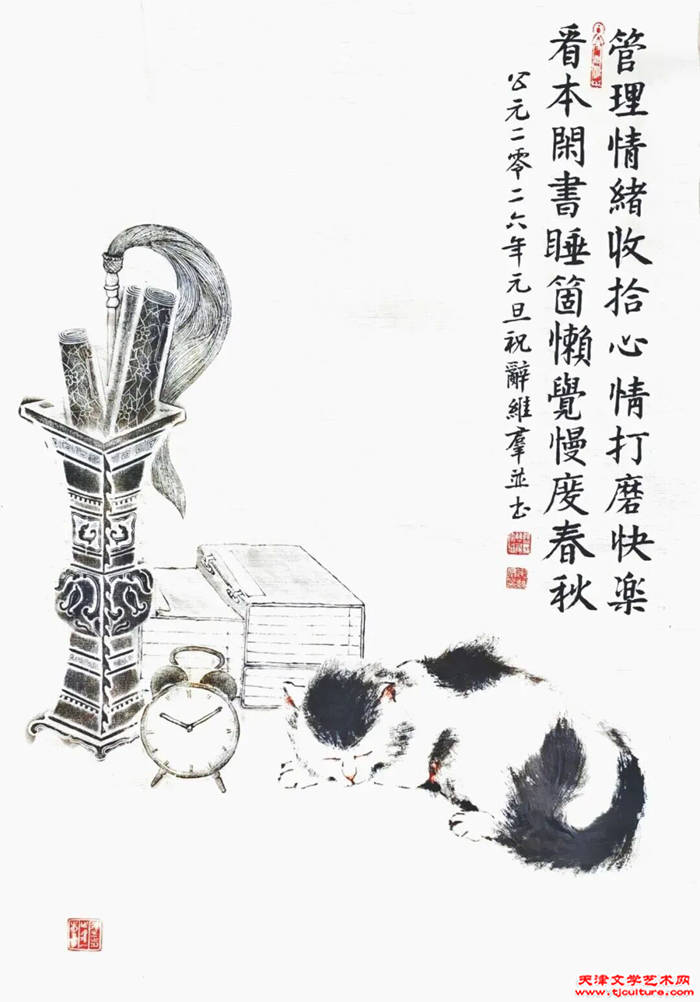 管理情緒收拾心情打磨快樂
看本閑書睡箇懶覺慢度春秋
公元二零二六年元旦祝辭維羣並書
天津文学艺术网
www.tjculture.com